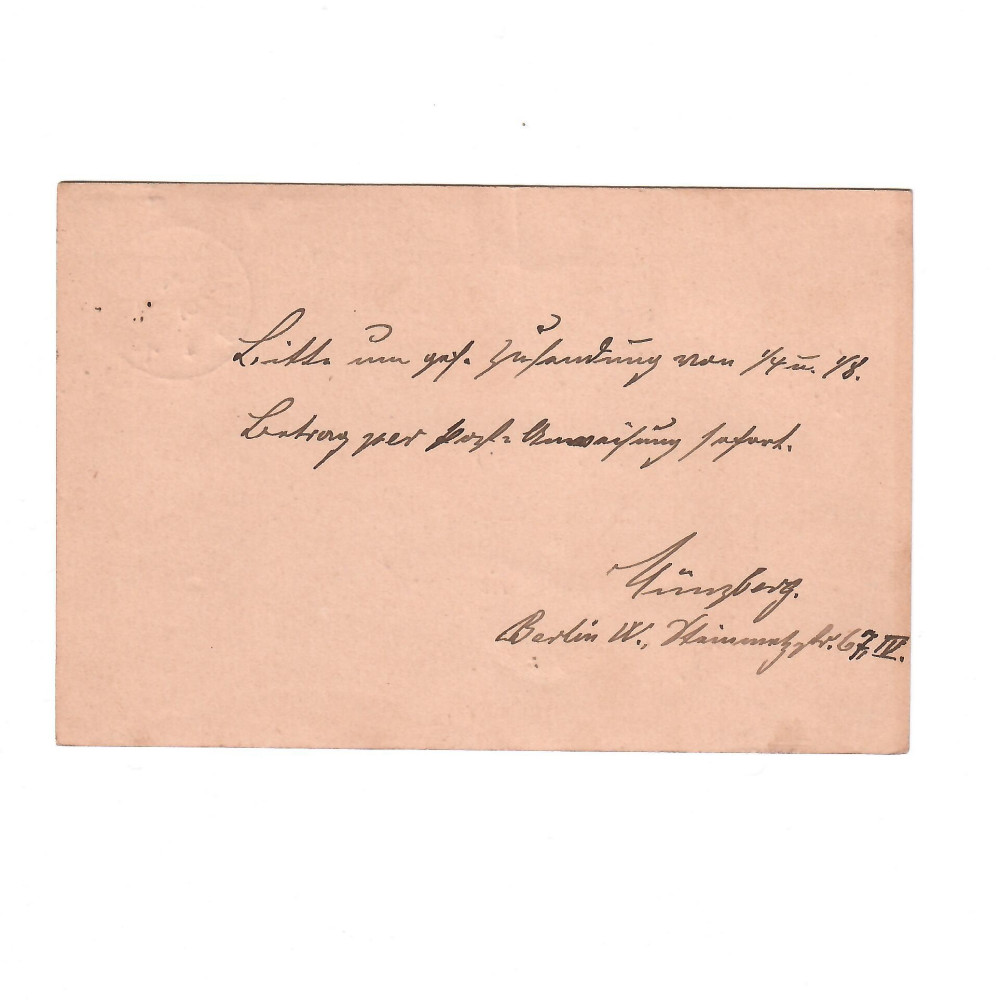 Bitte um gef. Zusendung von 1/4 u. 1/8.
Betrag per Post-Anweisung sofort.
Münzberg.
Berlin W., Steinmetzstr. 67, IV.